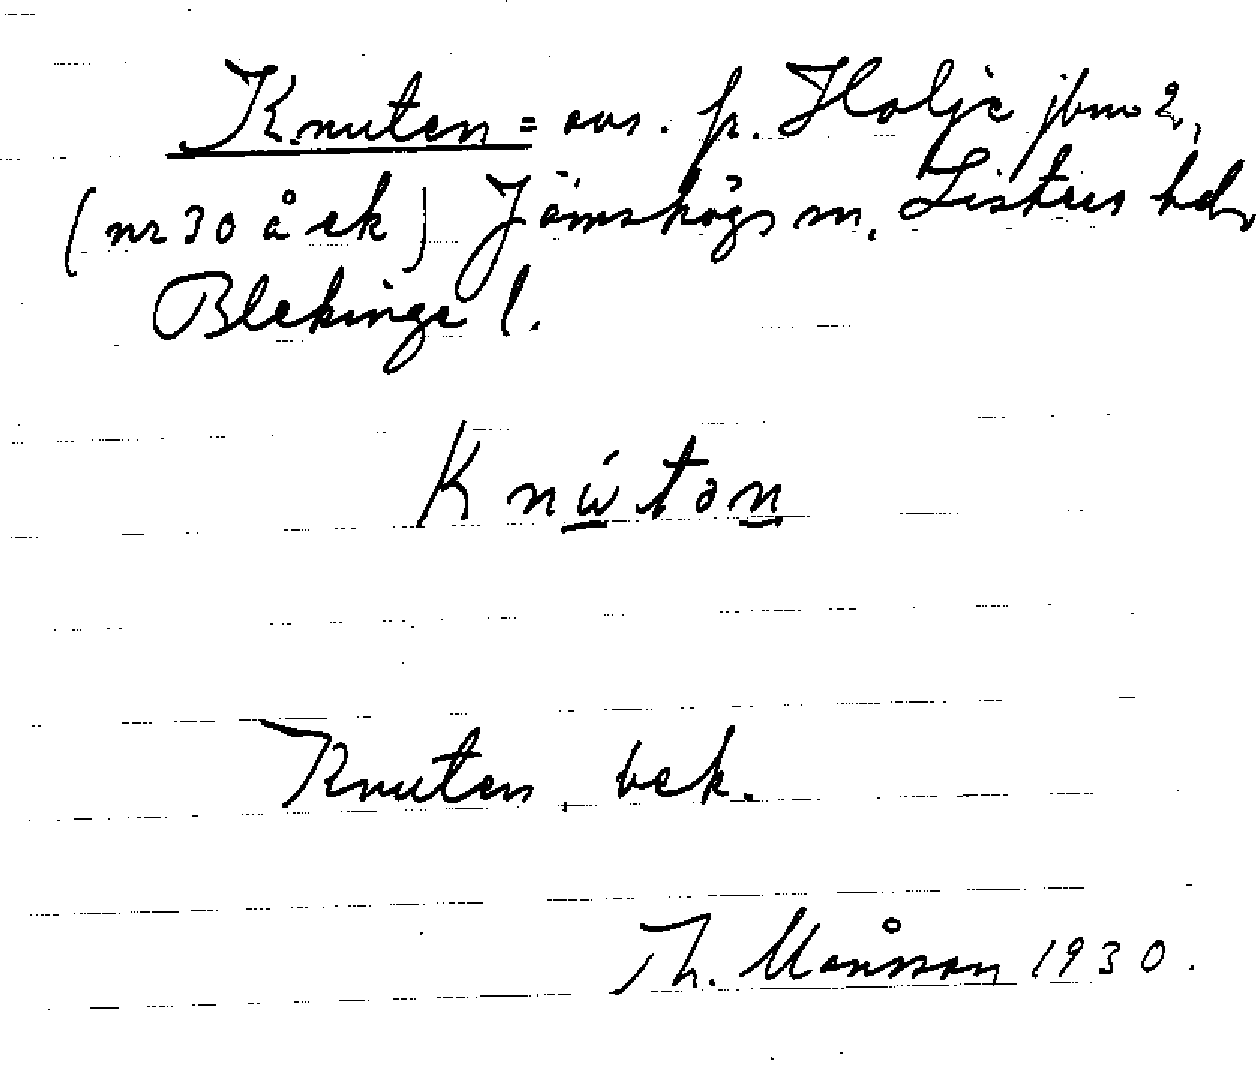 Knuten = avs. fr. Holje jbno 2,
(nr 30 å ek) Jämshögs sn. Listers hd,
Blekinge l.
Knẃton
Knuten, bek.
Th. Månsson 1930.